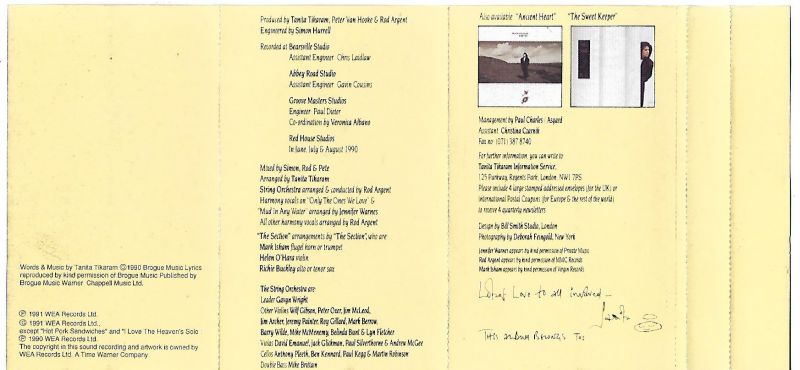 Words & Music by Tanita Tikaram Ⓒ1990 Brogue Music Lyrics
reproduced by kind permission of Brogue Music Published by
Brogue Music Warner Chappell Music Ltd.
Ⓟ 1991 WEA Records Ltd.
Ⓒ 1991 WEA Records Ltd.,
except "Hot Pork Sandwiches" and "I Love The Heaven's Solo
Ⓟ 1990 WEA Records Ltd.
The copyright in this sound recording and artwork is owned by
WEA Records Ltd. A Time Warner Company.
Produced by Tanita Tikaram, Peter Van Hooke & Rod Argent
Engineered by Simon Hurrell
Recorded at Bearsville Studio
Assistant Engineer Chris Laidlaw
Abbey Road Studio
Assistant Engineer Gavin Cousins
Groove Masters Studios
Engineer Paul Dieter
Co-ordination by Veronica Albano
Red House Studios
In June, July & August 1990
Mixed by Simon, Rod & Pete
Arranged by Tanita Tikaram
String Orchestra arranged & conducted by Rod Argent
Harmony vocals on "Only The Ones We Love" &
"Mud In Any Water" arranged by Jennifer Warnes
All other harmony vocals arranged by Rod Argent
"The Section" arrangements by "The Section", who are
Mark Isham flugel horn or trumpet
Helen O'Hara violin
Richie Buckley alto or tenor sax
The String Orchestra are:
Leader Gavyn Wright
Other Violins Wilf Gibson, Peter Oxer, Jim McLeod,
Jim Archer, Jeremy Painter, Roy Gillard, Mark Berrow,
Barry Wilde, Mike McMenemy, Belinda Bunt & Lyn Fletcher
Violas David Emanuel, Jack Glickman, Paul Silverthorne & Andrew McGee
Cellos Anthony Pleeth, Ben Kennard, Paul Kegg & Martin Robinson
Double Bass Mike Brittain
Also available "Ancient Heart" "The Sweet Keeper"
Management by Paul Charles Asgard
Assistant Christina Czarnik
Fax no (071) 387 8740
For further information, you can write to
Tanita Tikaram Information Service,
125 Parkway, Regents Park, London. NW1 7PS
Please include 4 large stamped addressed envelopes (for the UK) or
International Postal Coupons (for Europe & the rest of the world)
to receive 4 quarterly newsletters
Design by Bill Smith Studio, London
Photography by Deborah Feingold, New York
Jennifer Warnes appears by kind permission of Private Music
Rod Argent appears by kind permission of MMC Records
Mark Isham appears by kind permission of Virgin Records
Love to all involved -
Tanita
THIS ALBUM BELONGS TO: